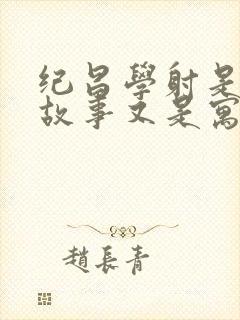 纪昌學射是
故事又是寓
趙長青